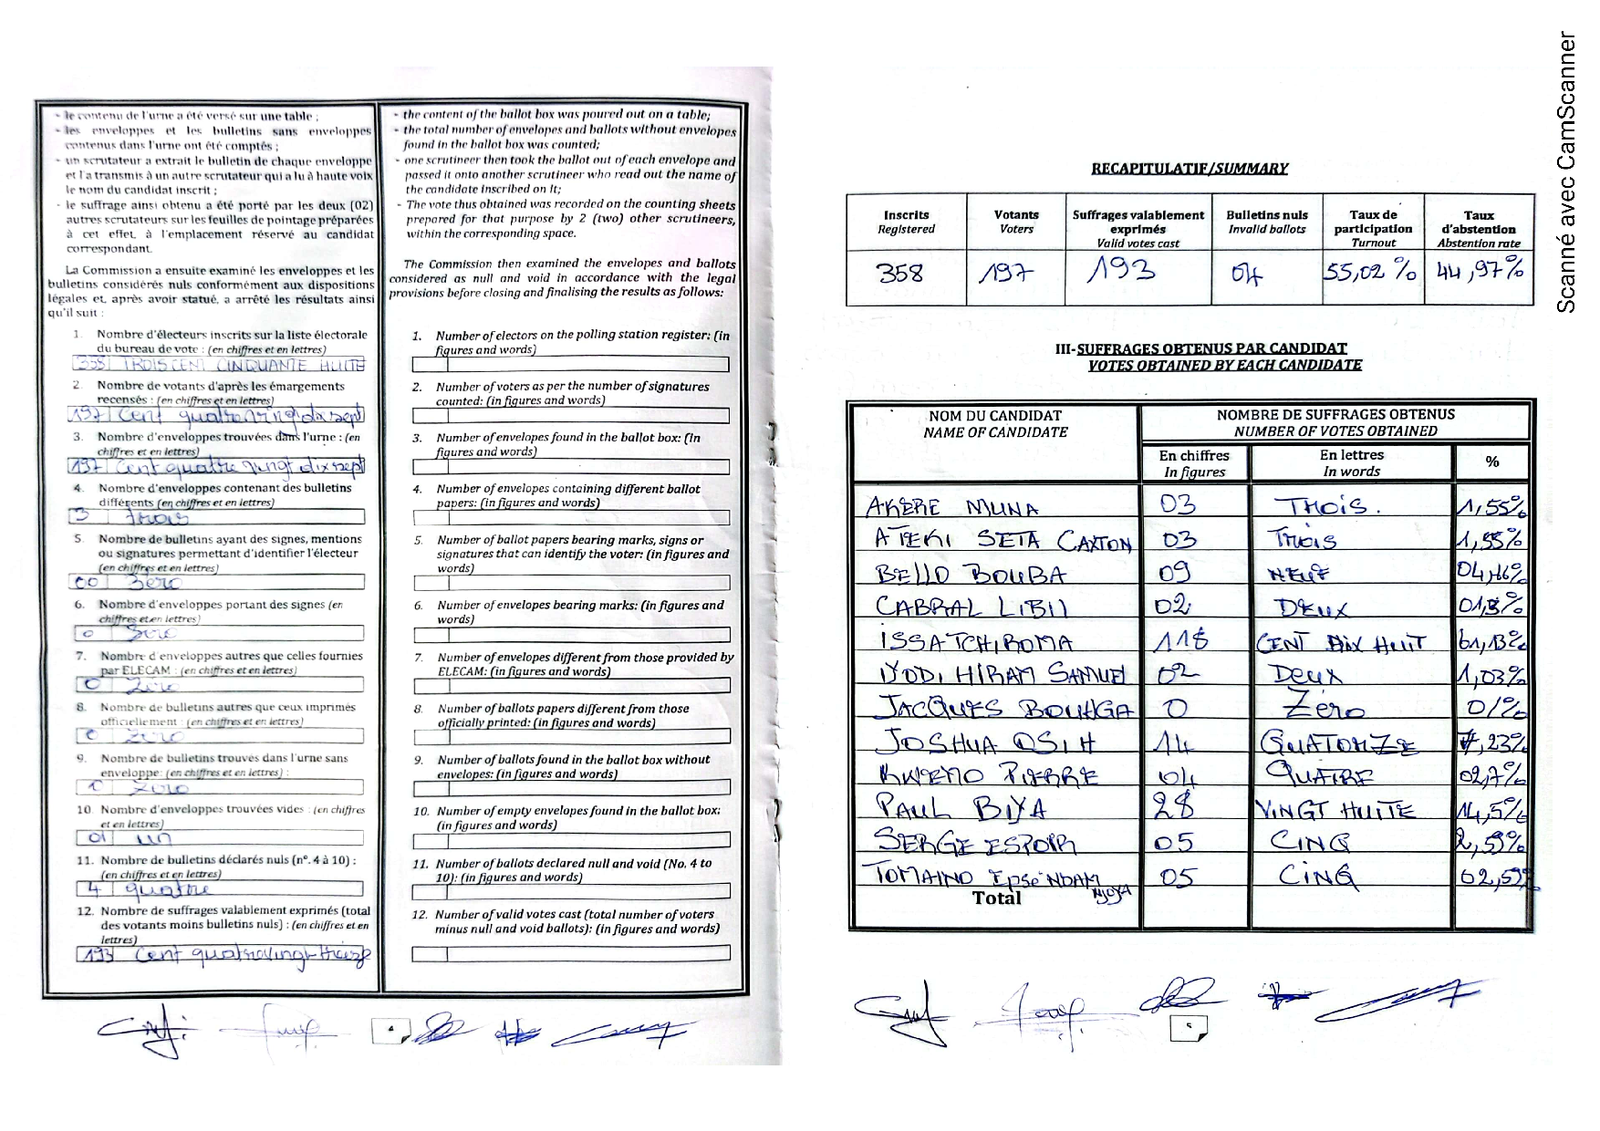 - le contenu de l'urne a été versé sur une table ;
- les enveloppes et les bulletins sans enveloppes
contenus dans l'urne ont été comptés ;
- un scrutateur a extrait le bulletin de chaque enveloppe
et l'a transmis à un autre scrutateur qui a lu à haute voix
le nom du candidat inscrit ;
- le suffrage ainsi obtenu a été porté par les deux (02)
autres scrutateurs sur les feuilles de pointage préparées
à cet effet, à l'emplacement réservé au candidat
correspondant.
La Commission a ensuite examiné les enveloppes et les
bulletins considérés nuls conformément aux dispositions
légales et, après avoir statué, a arrêté les résultats ainsi
qu'il suit :
1. Nombre d'électeurs inscrits sur la liste électorale
du bureau de vote : (en chiffres et en lettres)
358 TROIS CENT CINQUANTE HUITE
2. Nombre de votants d'après les émargements
recensés : (en chiffres et en lettres)
197 Cent quatre vingt dix sept
3. Nombre d'enveloppes trouvées dans l'urne : (en
chiffres et en lettres)
197 Cent quatre vingt dix sept
4. Nombre d'enveloppes contenant des bulletins
différents (en chiffres et en lettres)
3 trois
5. Nombre de bulletins ayant des signes, mentions
ou signatures permettant d'identifier l'électeur
(en chiffres et en lettres)
00 Zero
6. Nombre d'enveloppes portant des signes (en
chiffres et en lettres)
0 Zero
7. Nombre d'enveloppes autres que celles fournies
par ELECAM : (en chiffres et en lettres)
0 Zero
8. Nombre de bulletins autres que ceux imprimés
officiellement : (en chiffres et en lettres)
0 Zero
9. Nombre de bulletins trouvés dans l'urne sans
enveloppe: (en chiffres et en lettres) :
0 Zero
10. Nombre d'enveloppes trouvées vides : (en chiffres
et en lettres)
01 un
11. Nombre de bulletins déclarés nuls (n°. 4 à 10) :
(en chiffres et en lettres)
4 quatre
12. Nombre de suffrages valablement exprimés (total
des votants moins bulletins nuls) : (en chiffres et en
lettres)
193 Cent quatre vingt treize
- the content of the ballot box was poured out on a table;
- the total number of envelopes and ballots without envelopes
found in the ballot box was counted;
- one scrutineer then took the ballot out of each envelope and
passed it onto another scrutineer who read out the name of
the candidate inscribed on it;
- The vote thus obtained was recorded on the counting sheets
prepared for that purpose by 2 (two) other scrutineers,
within the corresponding space.
The Commission then examined the envelopes and ballots
considered as null and void in accordance with the legal
provisions before closing and finalising the results as follows:
1. Number of electors on the polling station register: (in
figures and words)
2. Number of voters as per the number of signatures
counted: (in figures and words)
3. Number of envelopes found in the ballot box: (In
figures and words)
4. Number of envelopes containing different ballot
papers: (in figures and words)
5. Number of ballot papers bearing marks, signs or
signatures that can identify the voter: (in figures and
words)
6. Number of envelopes bearing marks: (in figures and
words)
7. Number of envelopes different from those provided by
ELECAM: (in figures and words)
8. Number of ballots papers different from those
officially printed: (in figures and words)
9. Number of ballots found in the ballot box without
envelopes: (in figures and words)
10. Number of empty envelopes found in the ballot box:
(in figures and words)
11. Number of ballots declared null and void (No. 4 to
10): (in figures and words)
12. Number of valid votes cast (total number of voters
minus null and void ballots): (in figures and words)
4
RECAPITULATIF/SUMMARY
Inscrits Votants Suffrages valablement Bulletins nuls Taux de Taux
Registered Voters exprimés Invalid ballots participation d'abstention
Valid votes cast Turnout Abstention rate
358 197 193 04 55,02 % 44,97%
III-SUFFRAGES OBTENUS PAR CANDIDAT
VOTES OBTAINED BY EACH CANDIDATE
NOM DU CANDIDAT NOMBRE DE SUFFRAGES OBTENUS
NAME OF CANDIDATE NUMBER OF VOTES OBTAINED
En chiffres En lettres %
In figures In words
AKERE MUNA 03 TROIS. 1,55%
ATEKI SETA CAXTON 03 Trois 1,55%
BELLO BOUBA 09 NEUF 04,66%
CABRAL LIBII 02 DEUX
ISSA TCHIROMA 118 CENT DIX HUIT 61,13%
IYODI HIRAM SAMUEL 02 Deux 1,03%
JACQUES BOUHGA 0 Zéro 0/%
JOSHUA OSIH 14 QUATORZE 7,23%
KWEMO PIERRE 04 QUATRE 02,7%
PAUL BIYA 28 VINGT HUITE 14,5%
SERGE ESPOIR 05 CINQ 2,59%
TOMAINO Epse NDAM NJOYA 05 CINQ 02,59%
Total
5
Scanné avec CamScanner